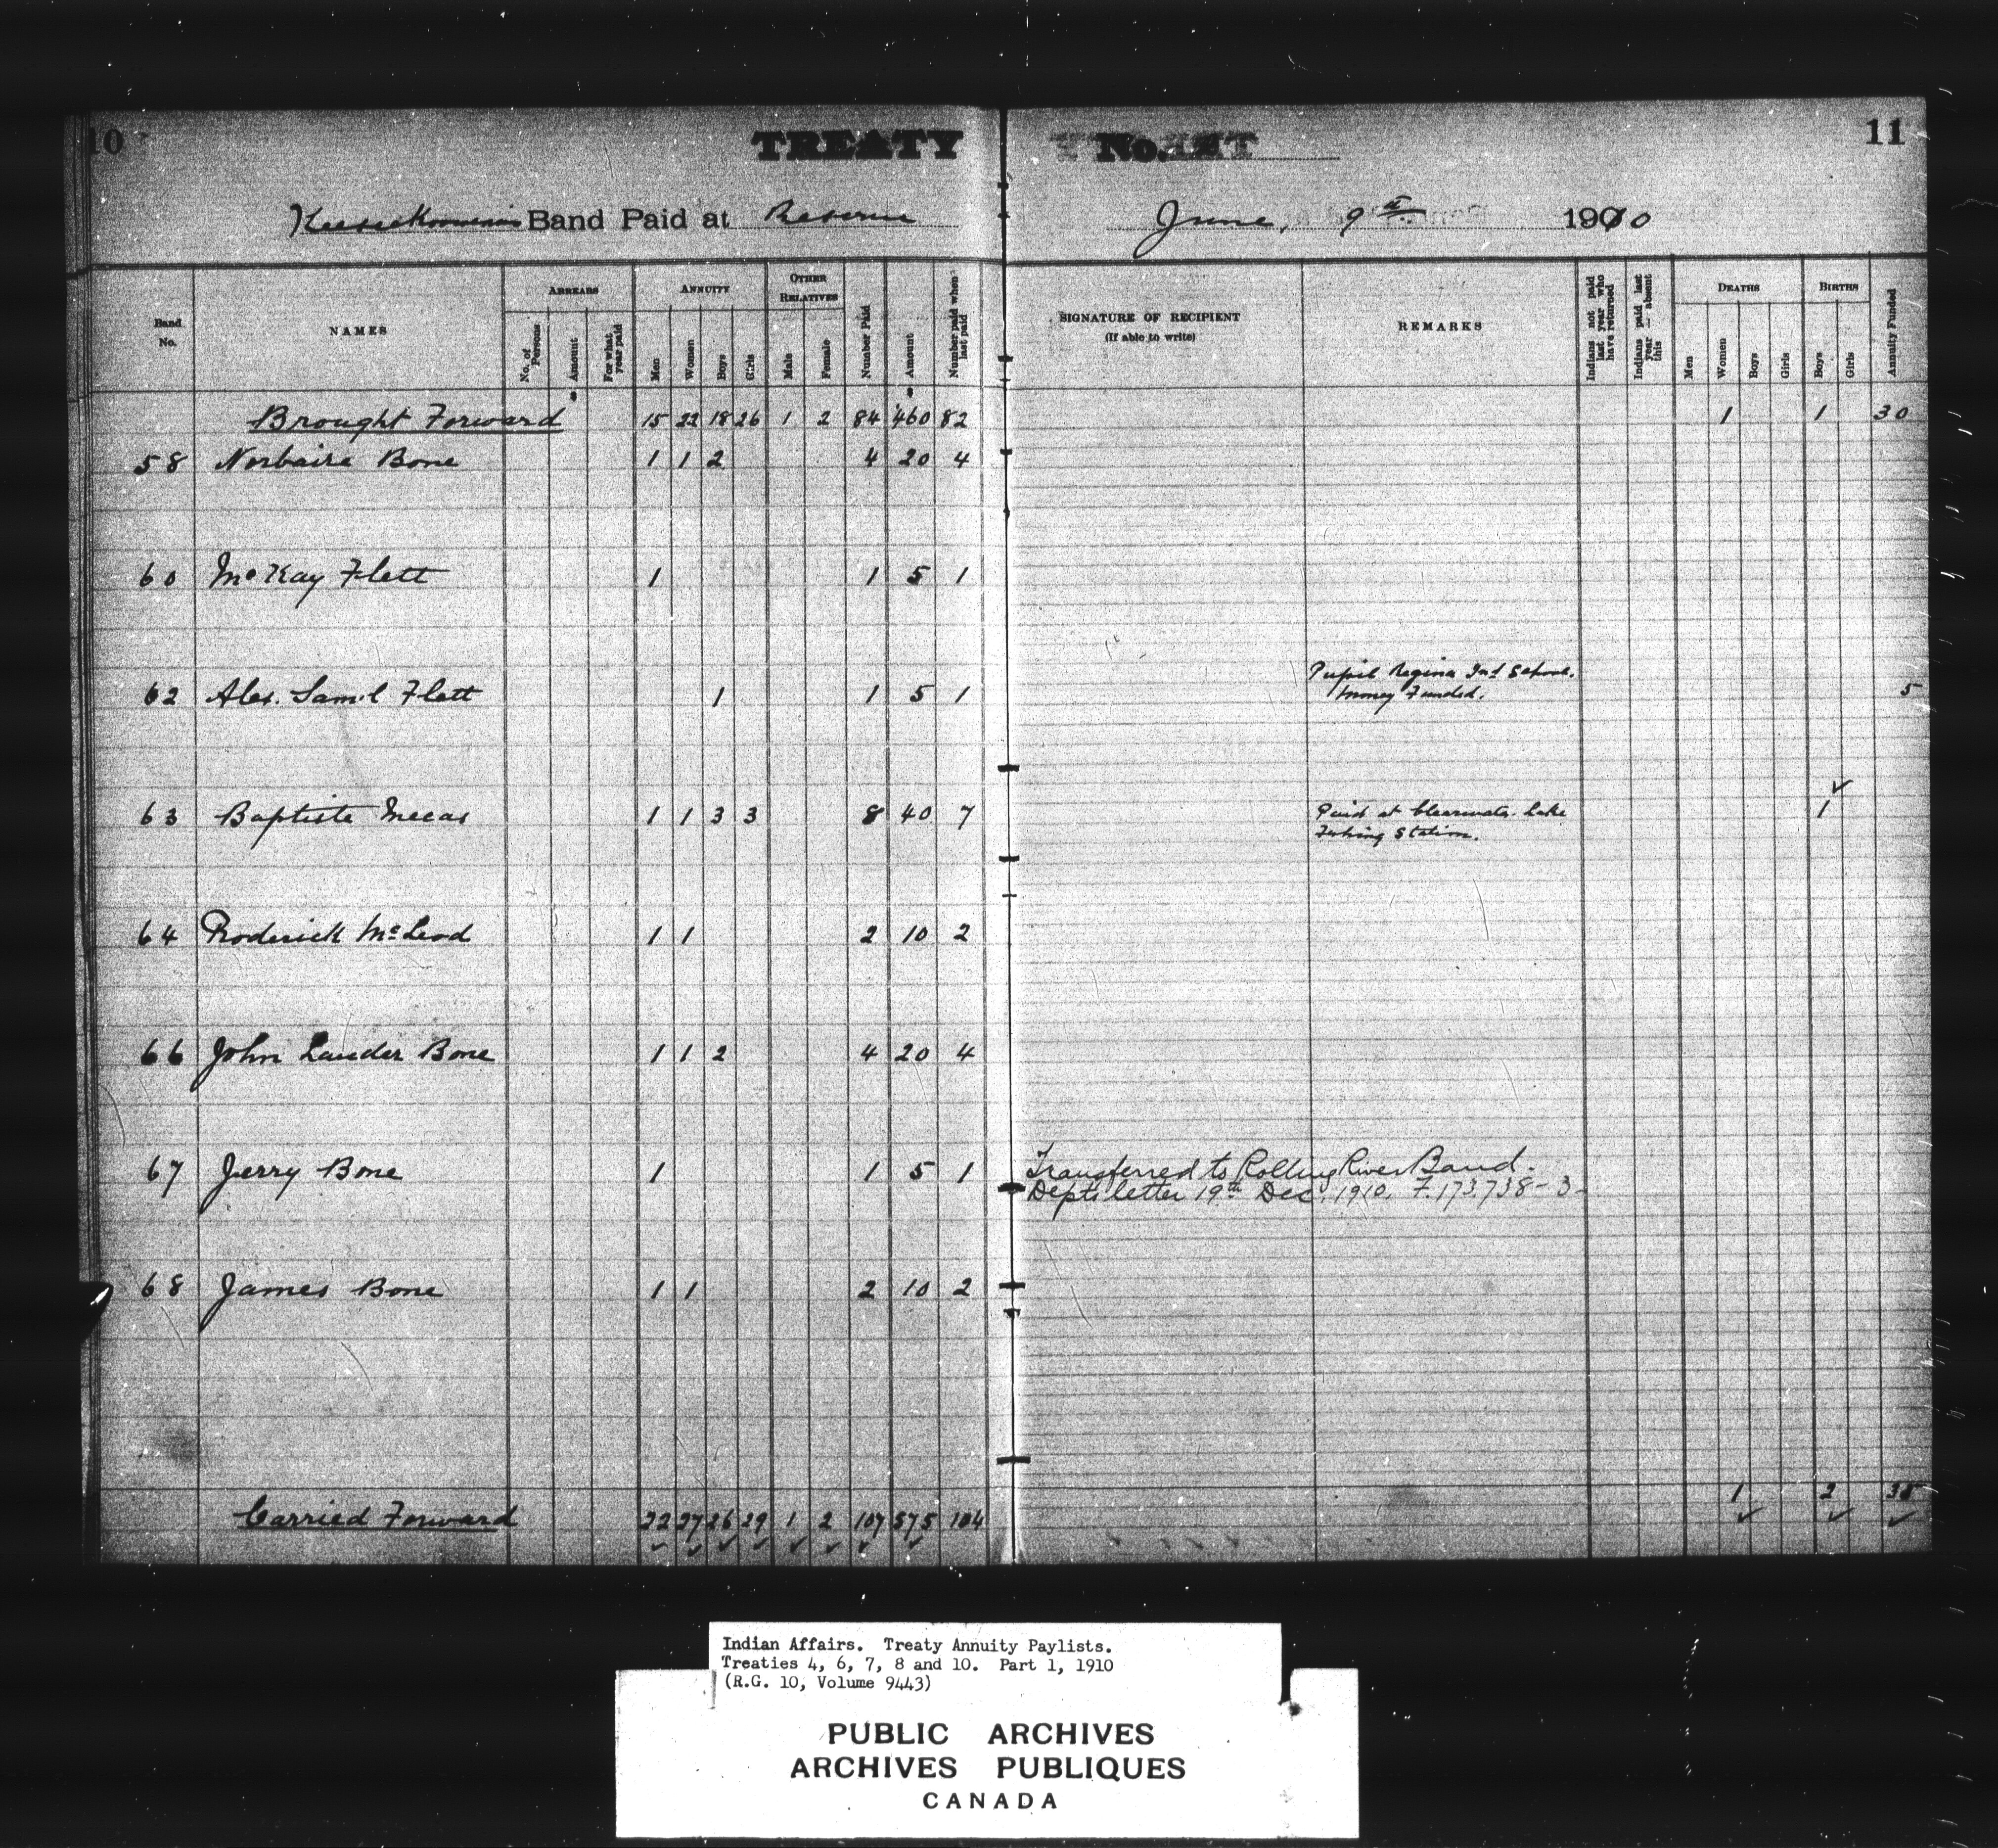 10
TREATY No.
11
Keeseekoowenins Band Paid at Reserve June, 9th 1910
Band No.
NAMES
ARREARS
No. of Persons
Amount
For what year paid
ANNUITY
Men
Women
Boys
Girls
OTHER RELATIVES
Male
Female
Number Paid
Amount
Number paid when last paid
SIGNATURE OF RECIPIENT
(If able to write)
REMARKS
Indians not paid last year who have returned
Indians paid last year absent this
DEATHS
Men
Women
Boys
Girls
BIRTHS
Boys
Girls
Annuity Funded
Brought Forward 15 22 18 26 1 2 84 460 82 1 1 30
58 Bone 1 1 2 4 20 4
60 McKay Flett 1 1 5 1
62 Alex. Saml Flett 1 1 5 1 Pupil Regina Ind School.
Money Funded. 5
63 Baptiste Mecas 1 1 3 3 8 40 7 Paid at Clearwater Lake 1
Fishing Station.
64 Roderick McLeod 1 1 2 10 2
66 John Lauder Bone 1 1 2 4 20 4
67 Jerry Bone 1 1 5 1 Transferred to Rolling River Band.
Depts letter 19th Dec. 1910. F.173738-3-
68 James Bone 1 1 2 10 2
Carried Forward 22 27 26 29 1 2 107 575 104 1 2 35
Indian Affairs. Treaty Annuity Paylists.
Treaties 4, 6, 7, 8 and 10. Part 1, 1910
(R.G. 10, Volume 9443)
PUBLIC ARCHIVES
ARCHIVES PUBLIQUES
CANADA